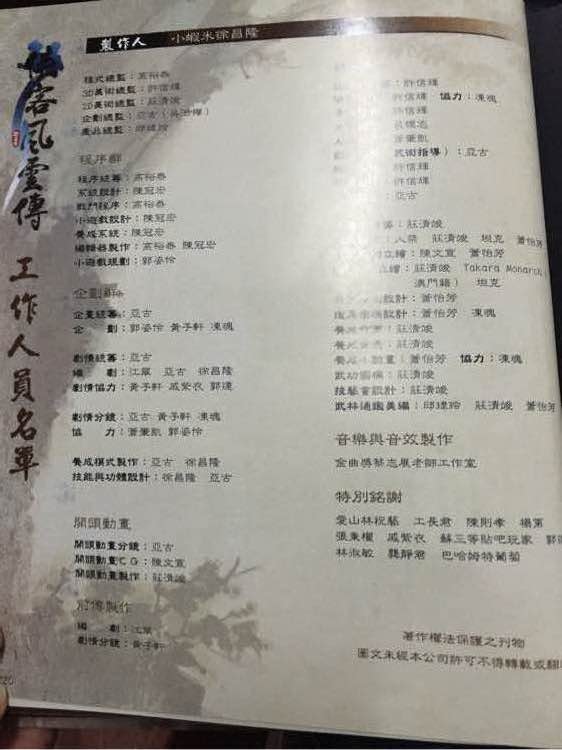 俠客風雲傳 工作人員名單
製作人 小蝦米徐昌隆
程式總監：高裕泰
3D美術總監：許信輝
2D美術總監：莊濆竣
企劃總監：亞古
產品總監：邱煒玲
程序群
程序統籌：高裕泰
系統設計：陳冠宏
戰鬥程序：高裕泰
小遊戲設計：陳冠宏
養成系統：陳冠宏
編輯器製作：高裕泰 陳冠宏
小遊戲規劃：郭姿伶
企劃群
企業統籌：亞古
企 劃：郭姿伶 黃子軒 凍魂
劇情統籌：亞古
編 劇：江犟 亞古 徐昌隆
劇情協力：黃子軒 戚紫衣 郭達
劇情分鏡：亞古 黃子軒 凍魂
協 力：蕭秉凱 郭姿伶
養成模式製作：亞古 徐昌隆
技能與功體設計：徐昌隆 亞古
開頭動畫
開頭動畫分鏡：亞古
開頭動畫CG：陳文宣
開頭動畫製作：莊濆竣
前傳製作
編 劇：江犟
劇情分鏡：黃子軒
：許信輝
許信輝 協力：凍魂
許信輝
蕭秉凱
美術指導）：亞古
許信輝
：亞古
莊濆竣
莊濆竣 坦克 蕭怡
陳文宣 蕭怡芳
莊濆竣 Takara Monarch
澳門籍） 坦克
設計：蕭怡芳
設計：蕭怡芳 凍魂
莊濆竣
莊濆竣
養成小動畫：蕭怡芳 協力：凍魂
武功圖標：莊濆竣
技藝書設計：莊濆竣
武林通鑑美編：邱煒玲 莊濆竣 蕭怡
音樂與音效製作
金曲獎蔡志展老師工作室
特別銘謝
棠山林祝藝 工長君 陳則孝 楊第
張秉權 戚紫衣 蘇三等貼吧玩家 郭
林淑敏 龔靜君 巴哈姆特葡萄
著作權法保護之刊物
圖文未經本公司許可不得轉載或翻